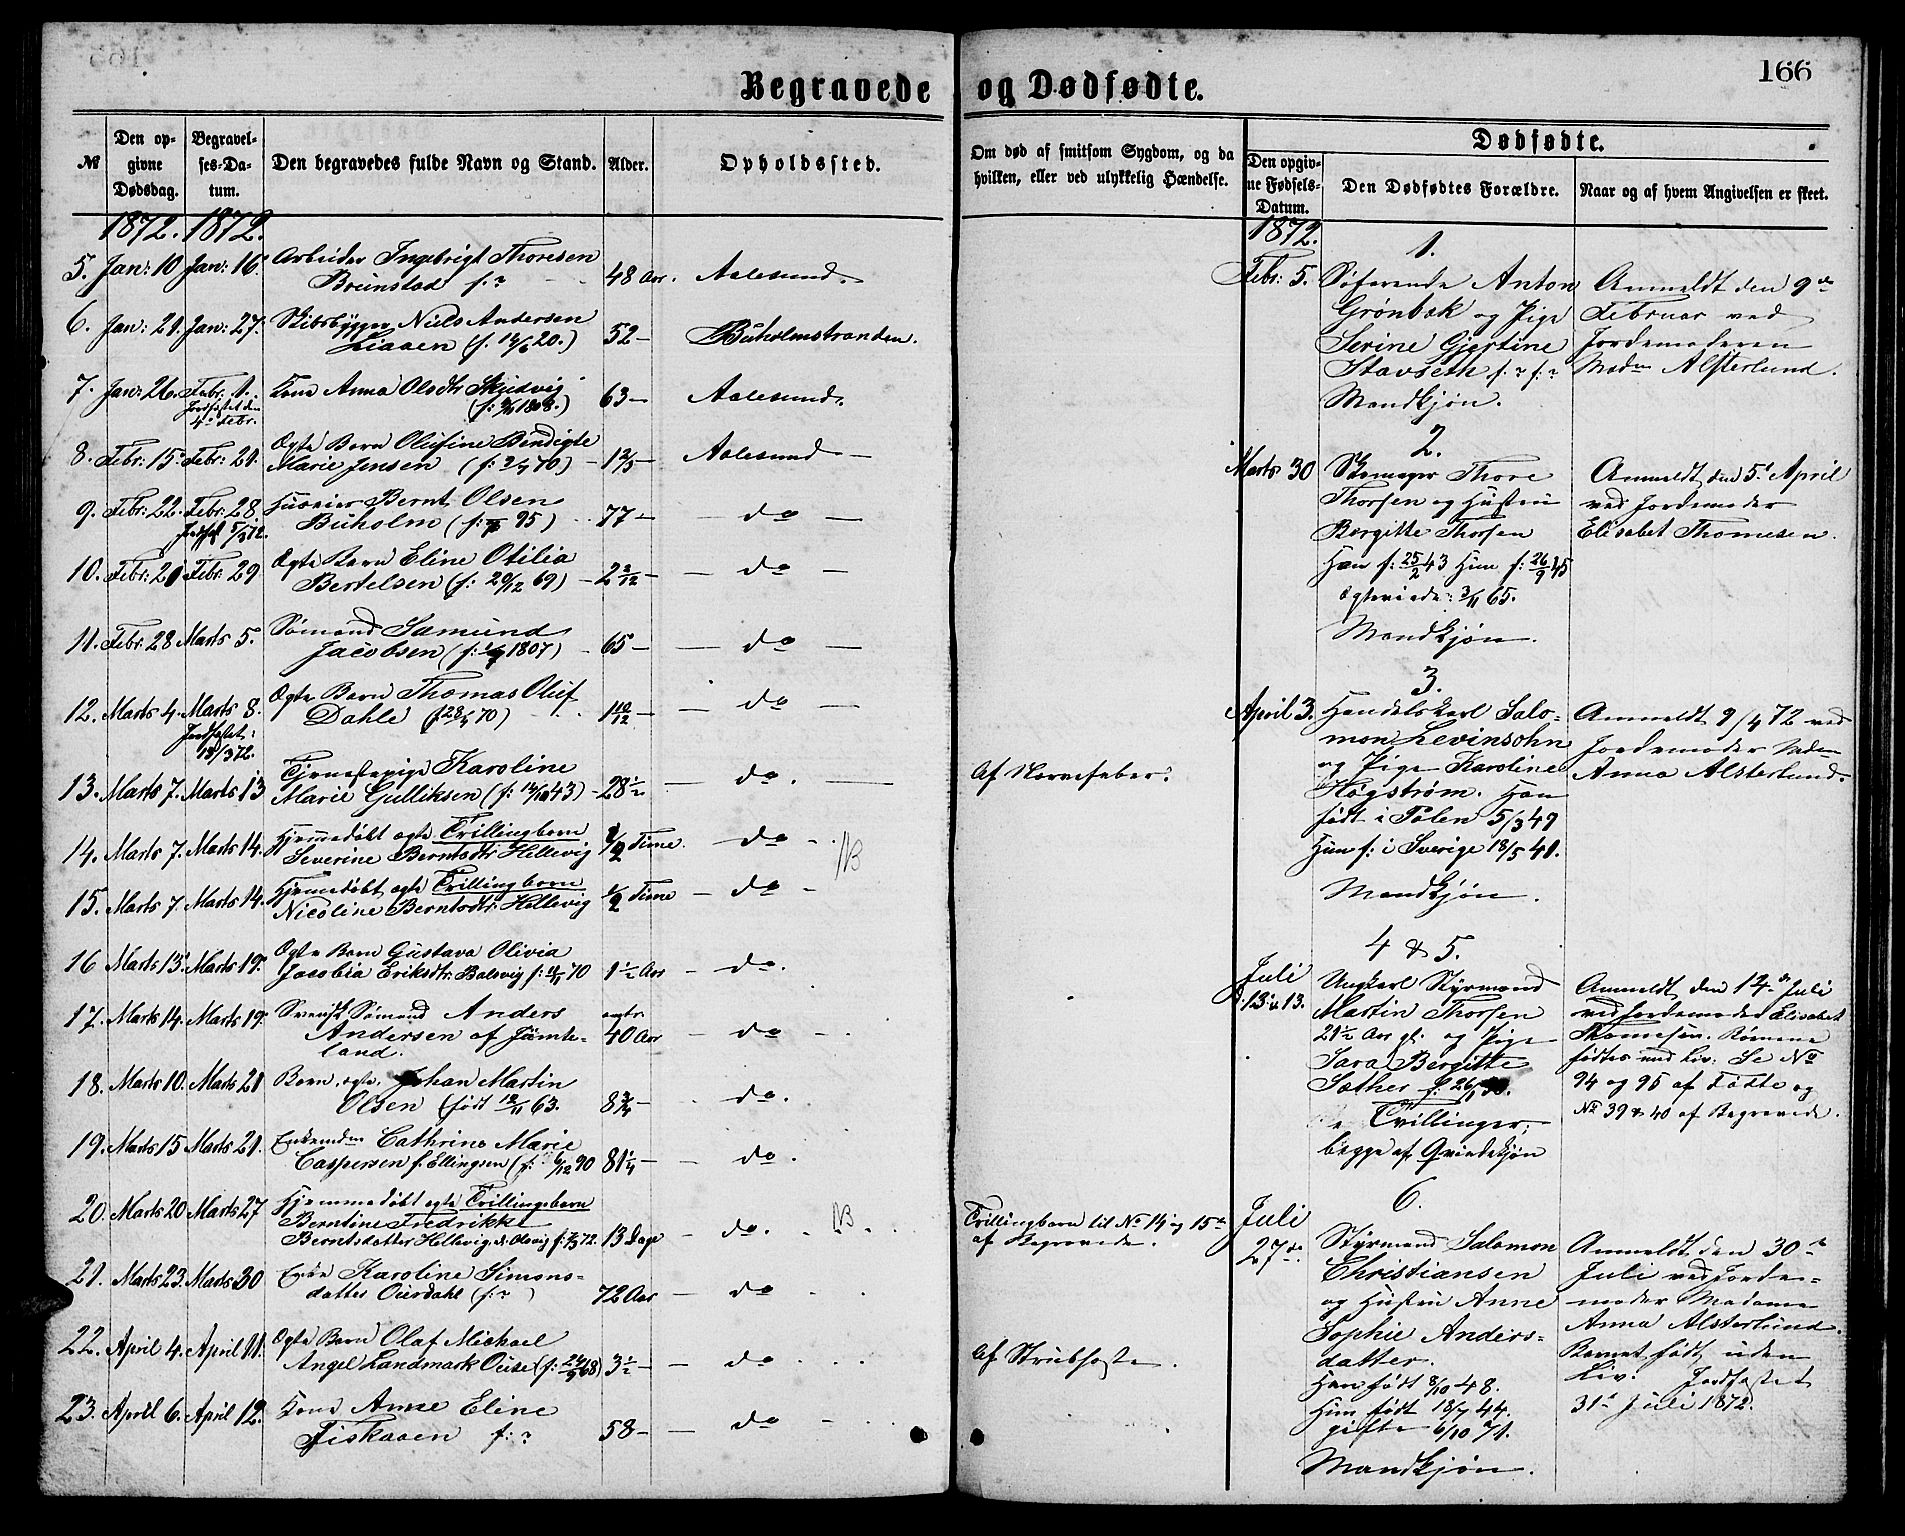 166
Begravede og Dødfødte.
№
Den opgivne Dødsdag.
Begravelses-Datum.
Den begravedes fulde Navn og Stand.
Alder.
Opholdssted.
Om død af smitsom Sygdom, og da hvilken, eller ved ulykkelig Hændelse.
Dødfødte.
Den opgivne Fødsels-Datum.
Den Dødfødtes Forældre.
Naar og af hvem Angivelsen er skeet.
1872. 1872.
5. Jan: 10 Jan: 16. Arbeider Ingebrigt Thoresen
Brunstad f: ? 48 Aar. Aalesund.
6. Jan: 21. Jan: 27. Skibsbygger Niels Andersen
Liaaen 52 - Buholmstranden.
7. Jan: 26. Febr: 1. Kone Anna Olsdtr Skudvig
Jordfæstet den 4de Febr. 63 - Aalesund.
8. Febr: 15. Febr: 21. Ægte Barn Olufine Bendigte
Marie Jensen Aalesund -
9. Febr: 22. Febr: 28 Huusier Bernt Olsen
Buholm 77 - - do -
10. Febr: 21 Febr: 29 Ægte Barn Eline Otilia
Bertelsen (f: 20/12 69) - 2 2/12 - - do -
11. Febr: 28 Marts 5. Sømand Samund
Jacobsen 65 - - do -
12. Marts 4. Marts 8. Ægte Barn Thomas Oluf
Jordfæstet: 13/3 72. Dahle 1 10/12 - - do -
13. Marts 7. Marts 13 Tjenestepige Karoline
Marie Gulliksen 28 1/2 - do. - Af Nervefeber.
14. Marts 7. Marts 14. Hjemmedøbt ægte Trillingbarn
Severine Berntsdtr Hellevig 1/2 Time. - do - NB
15. Marts 7. Marts 14. Hjemmedøbt ægte Trillingbarn
Nicoline Berntsdtr. Hellevig 1/2 Time - do -
16 Marts 13. Marts 19. Ægte Barn Gustava Olivia
Jacobia Eriksdtr. Balsvig 1 1/2 Aar - do.
17. Marts 14. Marts 19. Svensk Sømand Anders
Andersen af Jämteland. 40 Aar - do -
18. Marts 10. Marts 21 Barn, ægte, Johan Martin
Olsen (født 12/11 63. - do.
19. Marts 15 Marts 21. Cathrine Marie
Caspersen f. Ellingsen (f: 6/12 90 81 1/4 - - do.
20. Marts 20 Marts 27 Hjemmedøbt ægte Trillingsbarn
Berntine Fredrikke
Berntsdatter Hellevig 13 Dage - do. - NB. Trillingbarn til No 14 og 15 af Begravede.
21. Marts 23. Marts 30 Enke Karoline Simonsdatter
Ourdahl (f: ? ) 72 Aar - do
22. April 4. April 11. Ægte Barn Olaf Michael
Angel Landmark Ouse 3 1/2 - - do - Af Strubhoste.
23. April 6. April 12. Kone Anne Eline
Fiskaaen f: ? 58 - - do -
1872.
1.
Febr: 5. Søfarende Anton
Grønbæk og Pige
Serine Gjertine
Stavseth f: ? f: ?
Mandkjøn.
Anmeldt den 9de
Februar ved
Jordemoderen
Madm Alsterlund.
2.
Marts 30 Skomager Thore
Thorsen og Hustru
Bergitte Thorsen
Han f: 25/2 43 Hun f: 26/9 45
Ægteviede: 3/11 65.
Mandkjøn.
Anmeldt den 5te April
ved Jordemoder
Elisabet Thomesen.
3.
April 3. Handelskarl Salomon
Levinsohn
og Pige Karoline
Høgstrøm. Han
født i Polen 5/3 49
Hun f: i Sverige 18/5 41.
Mandkjøn.
Anmeldt 9/4 72 ved
Jordemoder Madm
Anna Alsterlund.
4 & 5.
Juli
13 & 13. Ungkarl Styrmand
Martin Thorsen
21 1/2 Aar gl. og Pige
Sara Bergitte
Sæther
Tvillinger,
begge af Qvindekjøn
Anmeldt den 14de Juli
ved Jordemoder Elisabet
Thomesen. Børnene
fødtes med Liv. Se No
94 og 95 af Fødte og
No 39 & 40 af Begravede.
6.
Juli
27de. Styrmand Salomon
Christiansen
og Hustru Anne
Sophie Andersdatter.
Han født 8/10 48.
Hun født 18/7 44.
gifte 6/10 71.
Mandkjøn.
Anmeldt den 30te
Juli ved Jordemoder
Madame
Anna Alsterlund.
Barnet født uden
Liv. Jordfæstet
31te Juli 1872.